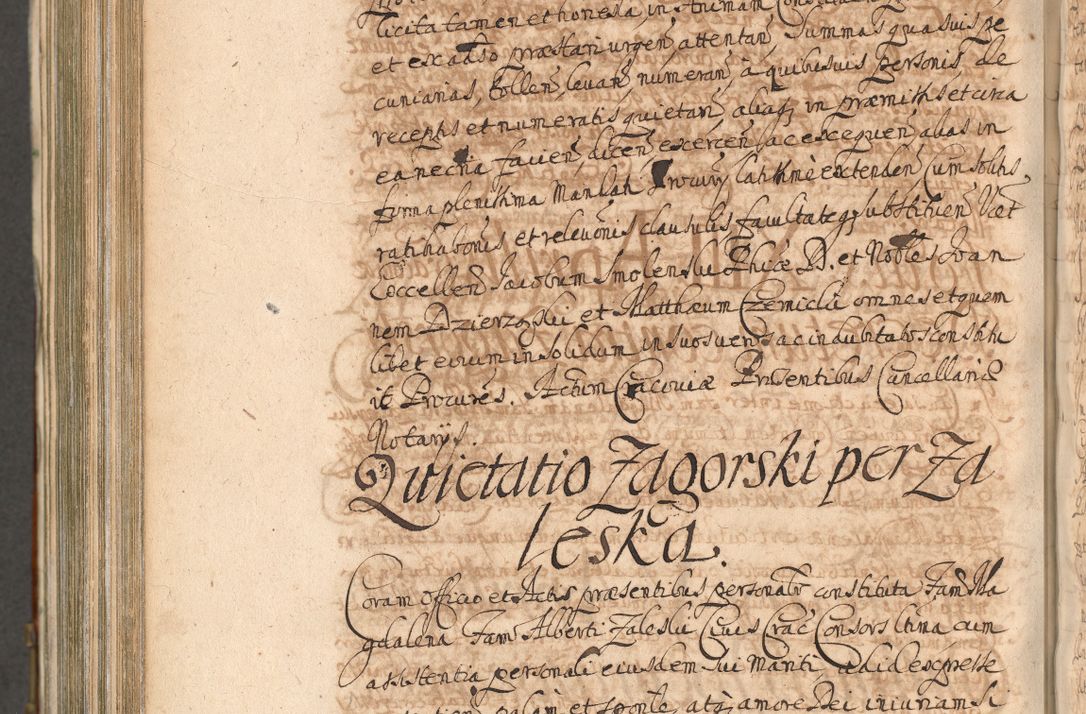 licita tamen et honesta, in Animam
et ex adso præstari urgen attentan, summas quasuis pe
cuniarias, tollen, levan, numeran, à quibusuis personis, de
receptis et numeratis quietan, aliaq in præmissis et circa
ea necria facien, dicen exercen ac exequen, alias in
forma plenissima Mandati Procury latissimè extenden, Cum solitis
ratihabonis, et relevonis clausulis facultateq substituen Vcet
Eoccellen Jacobum Smolenski Phiæ D. et Nobles Joan
nem Dzierzgski et Matthæum Czemicki omnes et quem
libet eorum in solidum in suos veros ac indubitatos constitu
it Procures. Actum Cracoviæ Presentibus Cancellariæ
Notarys.
Quietatio Zagorski per Za
leską.
Coram Officio et Actis præsentibus personalr constituta Fam Ma
gdalena Fam Alberti Zaleski Civis Crac Consors ltima cum
assistentia personali eiusdem sui Mariti, ad id expresse
palam et sponte, atq amore Dei iniuriam si